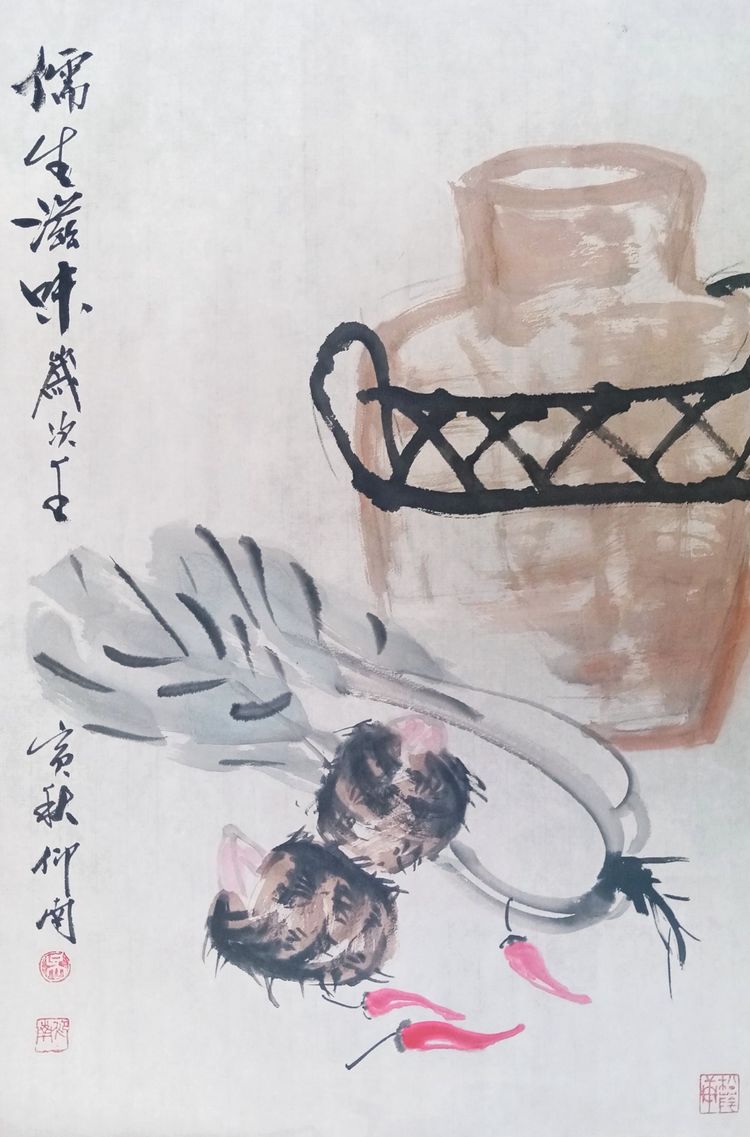 儒生滋味歲次壬
寅秋仰南